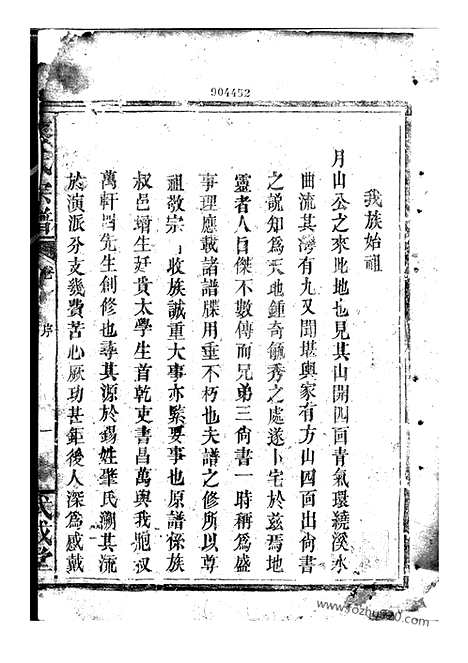 904452
我族始祖
月山公之來此地也見其山開四面青氣環繞溪水
曲流其灣有九又聞堪輿家有方山四面出尚書
之說知為天地鍾奇毓秀之處遂卜宅於茲焉地
靈者人自傑不數傳而兄弟三尚書一時稱為盛
事理應載諸譜牒用垂不朽也夫譜之修所以尊
祖敬宗收族誠重大事亦緊要事也原譜係族
叔邑增生廷貴太學生首乾吏書昌萬與我胞叔
萬軒四先生創修也尋其源於錫姓肇氏溯其流
於演派分支幾費苦心厥功甚鉅後人深為感戴
氏宗譜
卷 序 一
成堂
www.fozhu920.com